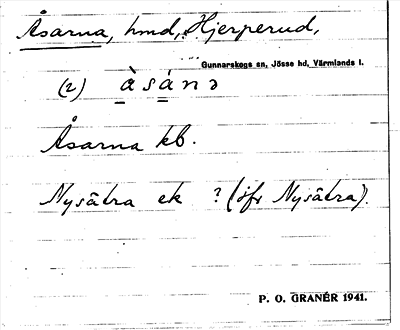 Åsarna, hmd, Hjerperud,
Gunnarskogs sn, Jösse hd, Värmlands l.
(2) àsánə
Åsarna kb.
Nysätra ek ? (jfr Nysätra).
P. O. GRANÉR 1941.